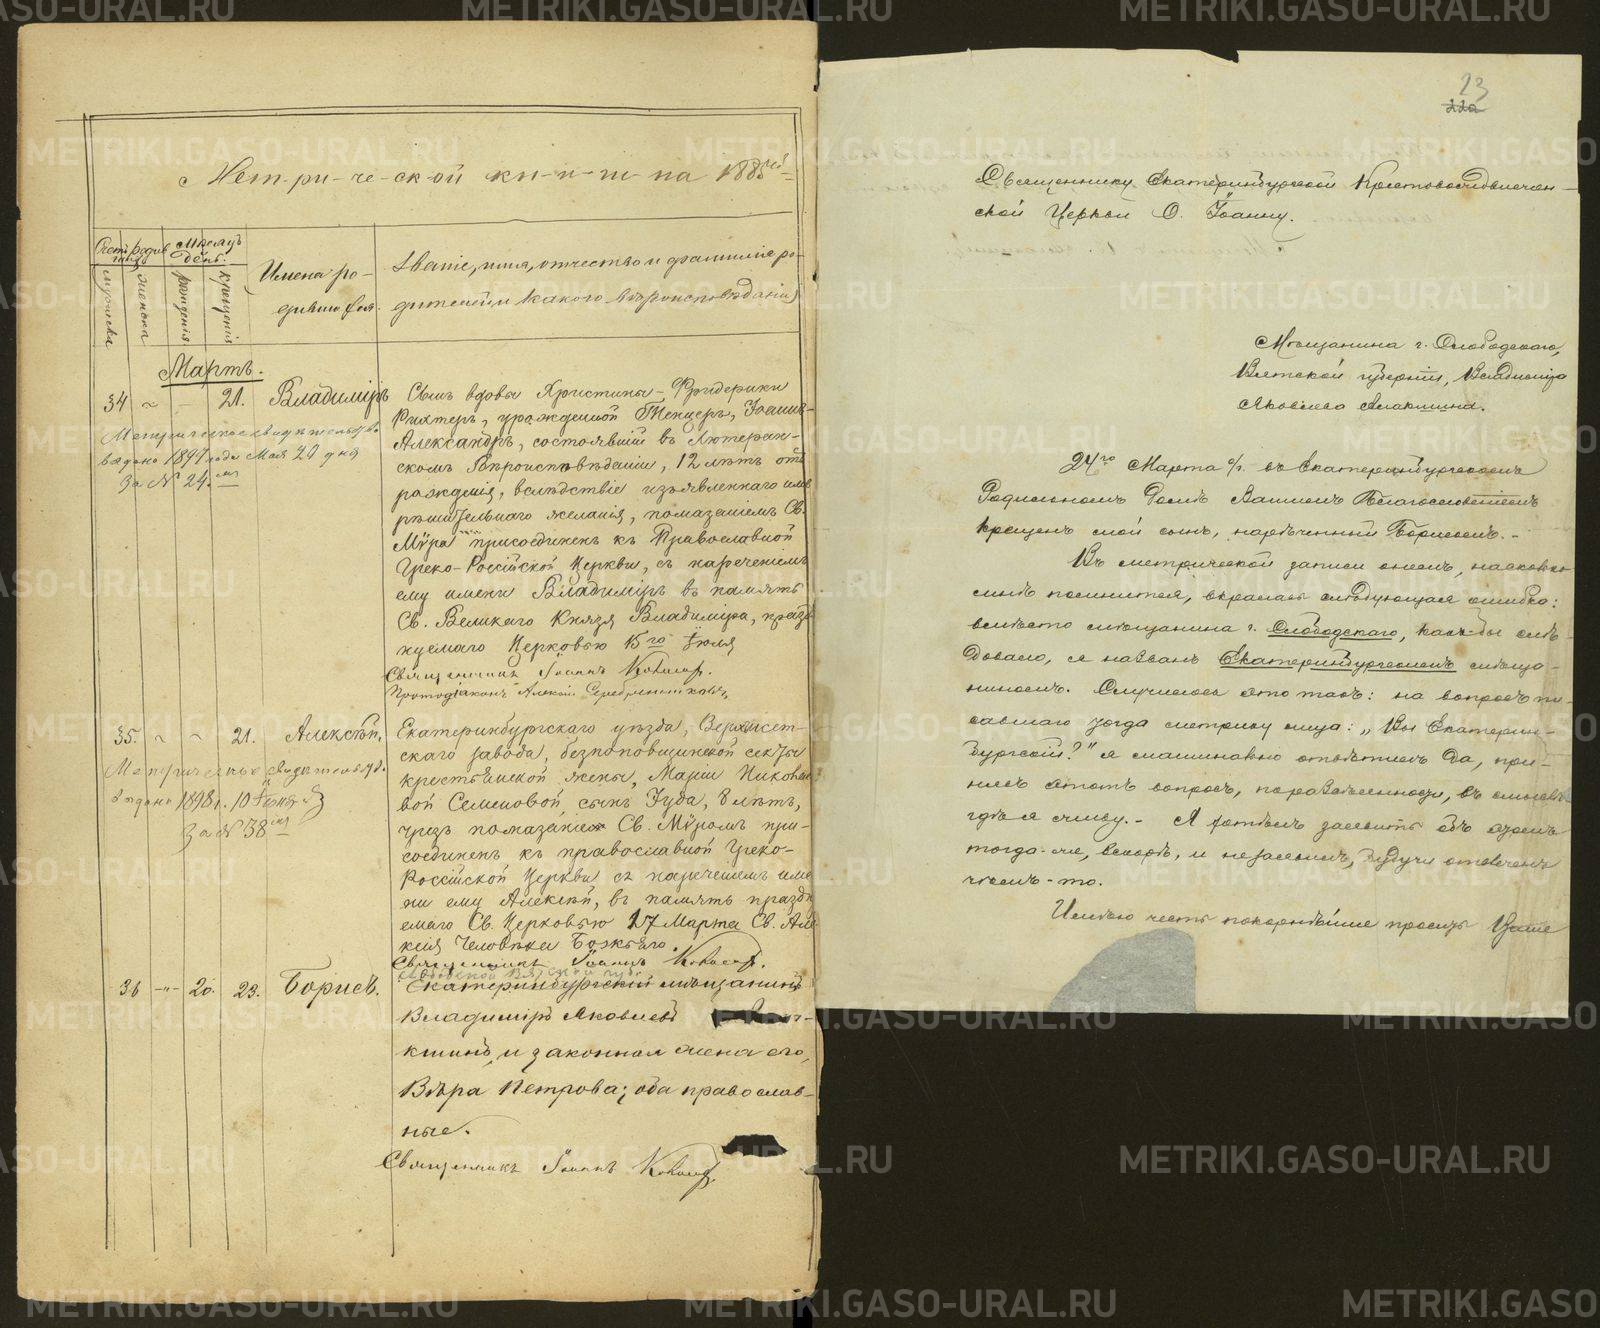 Метрической книги на 1885й
Счетъ родив
шихся
Мѣсяцъ
день.
мужеска
женска
рожденія
крещенія
Имена ро-
дившихся.
Званіе, имя, отчество и фамилія ро-
дителей, и какого вѣроисповѣданія
Мартъ.
34 21. Владиміръ
Метрическое свидѣтельство
выдано 1897 года Мая 20 дня
За № 24.
Сынъ вдовы Христины-Фридерики
Рихтеръ, урожденной Іоаннъ-
Александръ, состоявшій въ Лютеран-
скомъ Вѣроисповѣданіи, 12 лѣтъ отъ
рожденія, вслѣдствіе изъявленнаго имъ
рѣшительнаго желанія, помазаніемъ Св.
Мѵра присоединенъ къ Православной
Греко-Россійской Церкви, съ нареченіемъ
ему имени Владиміръ въ память
Св. Великаго Князя Владиміра, празд
нуемаго Церковью 15го Іюля
Священникъ Іоаннъ
Протодіаконъ Алексій
35. 21. Алексѣй,
Метрическое свидѣтельство
выдано 1898 г. 10
За № 38
Екатеринбургскаго уѣзда, Верхисет-
скаго завода, безпоповщинской секты
крестьянской жены, Маріи
вой Семеновой, сынъ Іуда, 8 лѣтъ,
чрезъ помазаніе Св. Мѵромъ при-
соединенъ къ православной Греко-
Россійской Церкви съ нареченіемъ име
ни ему Алексѣй, въ память праздн
емаго Св. Церковью 17 Марта Св. Але
ксія Человѣка Божьяго.
Священникъ Іоаннъ
36 20. 23. Борисъ.
Екатеринбургскій мѣщанинъ
Владиміръ Яковлевъ
кшинъ, и законная жена его,
Вѣра Петрова; оба православ-
ные.
Священникъ Іоаннъ
23
Священнику Екатеринбургской Крестовоздвижен-
ской Церкви О. Іоанну.
Мѣщанина г. Слободского,
Вятской губерніи, Владиміра
Яковлева
24го Марта с/г. въ Екатеринбургскомъ
Родильномъ Домѣ Вашимъ Благословеніемъ
крещенъ мой сынъ, нареченный Борисомъ.-
Въ метрической записи онемъ, насколько
мнѣ помнится, вкралась слѣдующая ошибка:
вмѣсто мѣщанина г. Слободского, какъ бы слѣ-
довало, я названъ Екатеринбургскимъ мѣща-
ниномъ. Случилось это такъ: на вопросъ пи-
савшаго тогда метрику лица: „Вы Екатерин-
бургскій?" я машинально отвѣтилъ да, при-
нявъ этотъ вопросъ, въ смыслѣ
гдѣ я живу.- Я хотѣлъ заявить объ этомъ
тогда-же, вскорѣ, и не заявилъ, будучи отвлеченъ
чѣмъ-то.
Имѣю честь покорнѣйше просить Ваше
METRIKI.GASO-URAL.RU